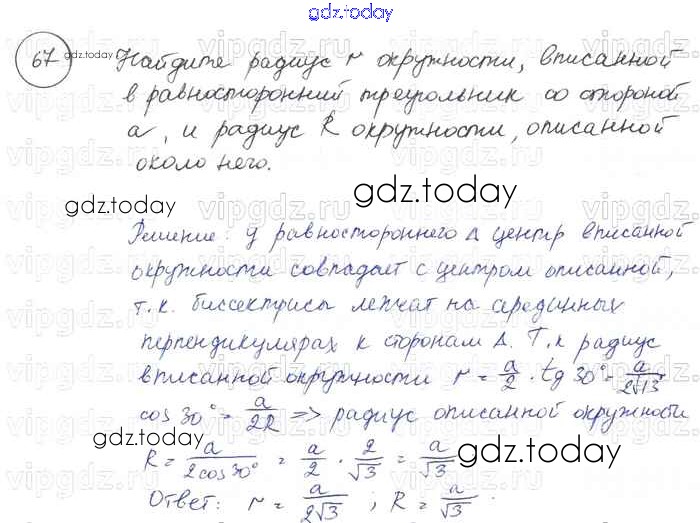 gdz.today
67 gdz.today Найдите радиус r окружности, вписанной
в равносторонний треугольник со стороной
a, и радиус R окружности, описанной
около него.
gdz.today gdz.today
Решение: У равностороннего Δ центр вписанной
окружности совпадает с центром описанной,
т.к. биссектрисы лежат на серединных
перпендикулярах к сторонам Δ. Т.к радиус
вписанной окружности r = a/2 · tg 30° = a/2√3
cos 30° = a/2R => радиус описанной окружности
R = a/2cos30° = a/2 · 2/√3 = a/√3
gdz.today gdz.today
Ответ: r = a/2√3 ; R = a/√3.